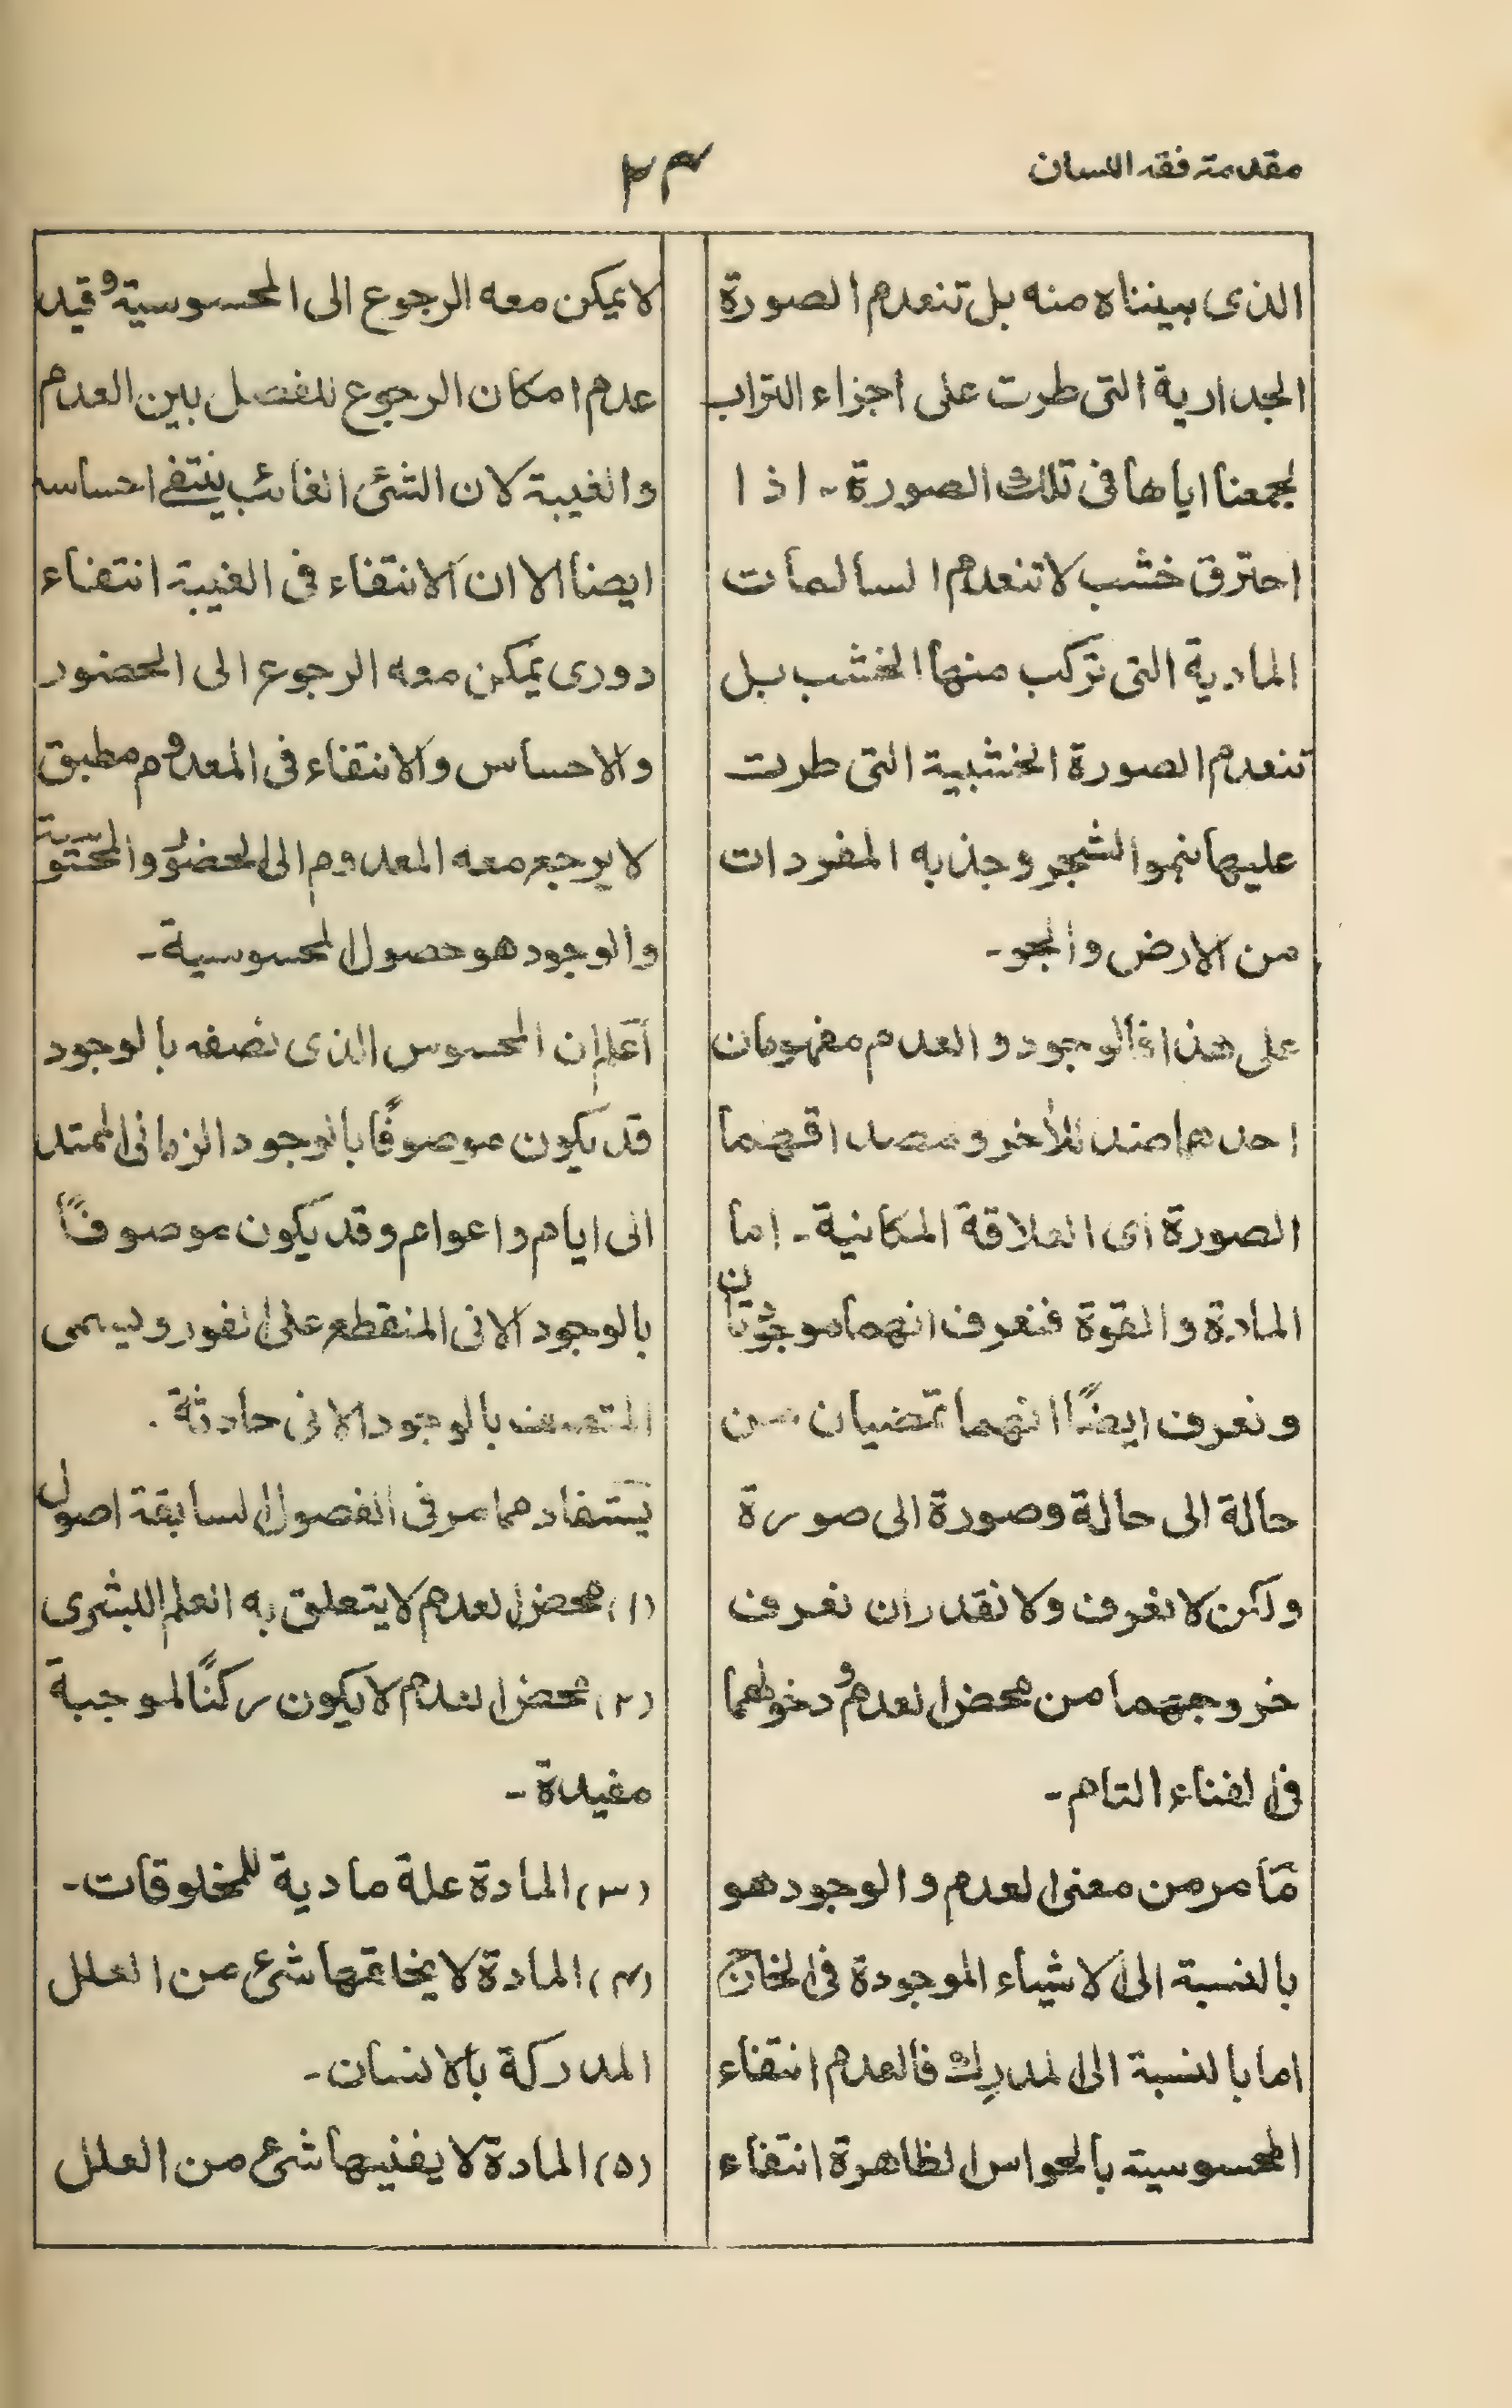 مقدمة فقه اللسان
الذى بيناه منه بل تنعدم الصورة
الجدارية التى طرت على اجزاء التراب
لجمعنا اياها فى تلك الصورة۔ اذا
احترق خشب لا تنعدم السالمات
المادية التى تركب منها الخشب بل
تنعدم الصورة الخشبية التى طرت
عليها نمو الشجر وجذبه المفردات
من الارض والجو۔
على هذا فالوجود والعدم مفهومان
احدهما ضد للأخر ومصداقهما
الصورة اى العلاقة المكانية۔ اما
المادة والقوة فنعرف انهما موجودتان
ونعرف ايضًا انهما تمضيان من
حالة الى حالة وصورة الى صورة
ولكن لا نعرف ولا نقدر ان نعرف
خروجهما من محض العدم ودخولهما
فى الفناء التام۔
مّا مر من معنى العدم والوجود هو
بالنسبة الى الاشياء الموجودة فى الخارج
اما بالنسبة الى المدرِك فالعدم انتفاء
المحسوسية بالحواس الظاهرة انتفاء
لا يمكن معه الرجوع الى المحسوسية وقيد
عدم امكان الرجوع للفصل بين العدم
والغيبة لان الشئ الغائب ينتفى احساسه
ايضا الا ان الانتفاء فى الغيبة انتفاء
دورى يمكن معه الرجوع الى الحضور
والاحساس والانتفاء فى المعدوم مطبق
لا يرجع معه المعدوم الى الحضور والمحسوسية
والوجود هو حصول المحسوسية۔
اعلم ان المحسوس الذى نصفه بالوجود
قد يكون موصوفًا بالوجود الزمانى الممتد
الى ايام واعوام وقد يكون موصوفًا
بالوجود الانى المنقطع على الفور ويسمى
المتصف بالوجود الانى حادثة.
يستفاد مما مر فى الفصول السابقة اصول
(۱) محض العدم لا يتعلق به العلم البشرى
(۲) محض العدم لا يكون ركنًا لموجبة
مفيدة۔
(۳) المادة علة مادية للمخلوقات۔
(۴) المادة لا يخلقها شئ من العلل
المدركة بالانسان۔
(۵) المادة لا يفنيها شئ من العلل